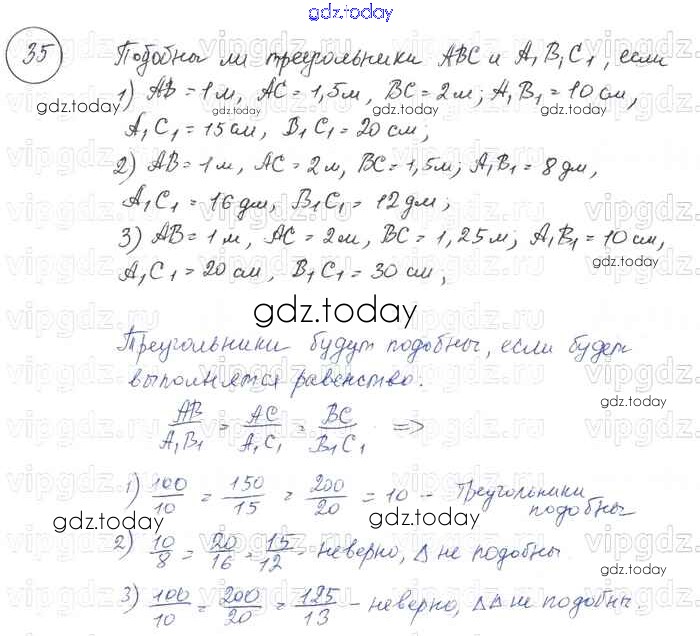 gdz.today
35
Подобны ли треугольники ABC и A₁B₁C₁, если
1) AB = 1 м, AC = 1,5 м, BC = 2 м; A₁B₁ = 10 см,
gdz.today gdz.today gdz.today
A₁C₁ = 15 см, B₁C₁ = 20 см;
2) AB = 1 м, AC = 2 м, BC = 1,5 м; A₁B₁ = 8 дм,
A₁C₁ = 16 дм, B₁C₁ = 12 дм;
3) AB = 1 м, AC = 2 м, BC = 1,25 м; A₁B₁ = 10 см,
gdz.today
A₁C₁ = 20 см, B₁C₁ = 30 см;
gdz.today
Треугольники будут подобны, если будет
выполняется равенство:
gdz.today
AB/A₁B₁ = AC/A₁C₁ = BC/B₁C₁ =>
1) 100/10 = 150/15 = 200/20 = 10 - Треугольники
подобны
gdz.today gdz.today
2) 10/8 = 20/16 = 15/12 - неверно, Δ не подобны
3) 100/10 = 200/20 = 125/13 - неверно, ΔΔ не подобны.
gdz.today gdz.today